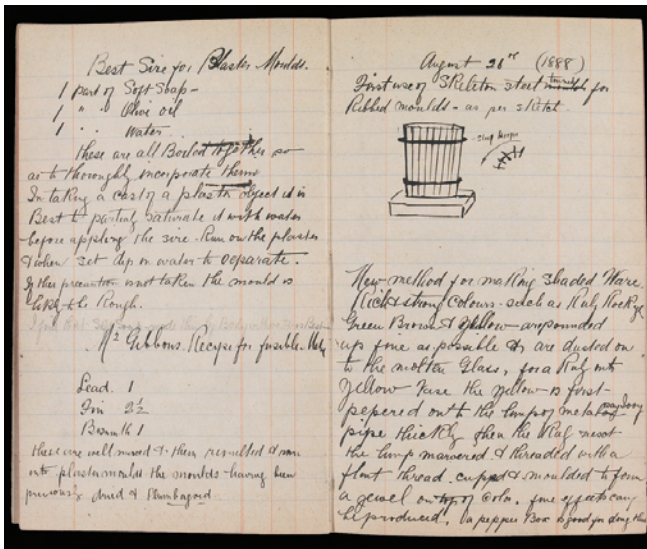 Best Size for Plaster Moulds.
1 part of Soft Soap -
1 " " Olive oil
1 " " Water
these are all Boiled together so
as to thoroughly incorporate them
In taking a cast of a plaster object it is
Best to partially saturate it with water
before applying the size. Run on the plaster
& when set dip in water to separate.
If this precaution is not taken the mould is
likely to Rough.
Mr Gibbons. Recipe for fusible
Lead. 1
Tin 2½
Bismuth 1
these are well mixed & then remelted & run
into plaster moulds the moulds having been
previously dried & Plumbagoed.
August 26 (1888)
First use of Skeleton steel for
Ribbed moulds - as per sketch.
New method for making shaded Ware.
Rich & strong colours. such as Ruby
Green Brown & Yellow - are pounded
up fine as possible & are dusted on
to the molten Glass, for a Ruby onto
Yellow Vase the yellow is first
peppered on to the lump of metal
pipe thickly then the Ruby next
the lump marvered & threaded with a
flint thread. cupped & moulded to form
a jewel on top of Color. fine effects can
be produced. a pepper Box is good for doing this